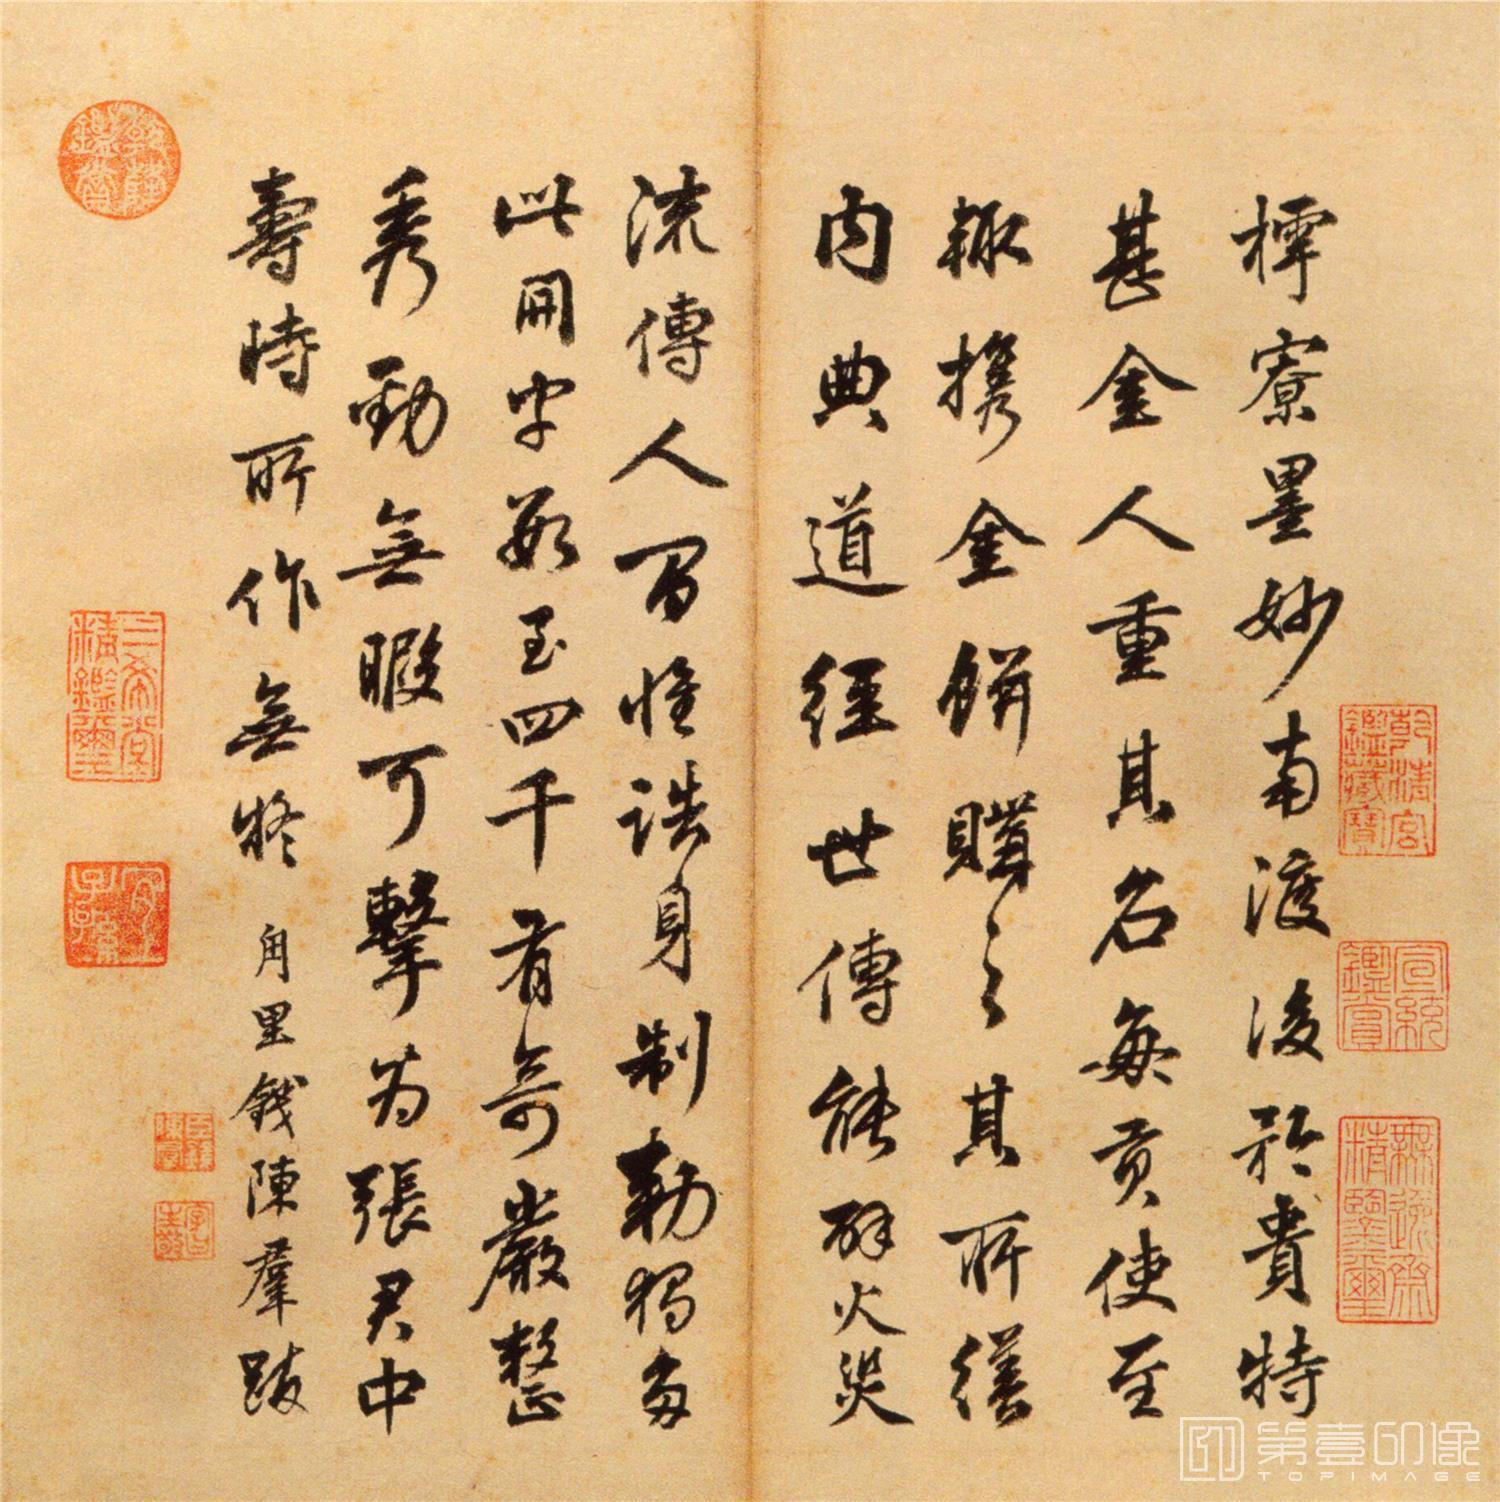 樗寮墨妙南渡後於貴特
甚金人重其名每貢使至
輙携金餅購之其所繕
内典道經世傳能辟火災
流傳人間惟誥身制勅獨多
此冊字數至四千有奇嚴整
秀勁無暇可擊为張君中
壽時所作無疑 甪里錢陳羣跋
乾清宮鑑藏寶
宣統鑑賞
無逸齋精鑒璽
乾隆鑑賞
三希堂精鑑璽
宜子孫
第壹印像
TOPIMAGE